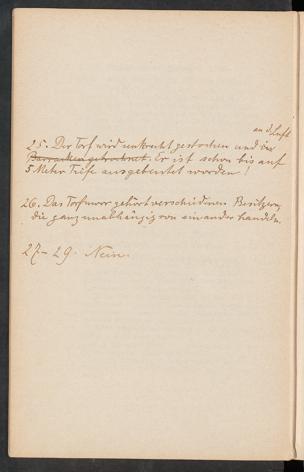 an d. Luft
25. Der Torf wird senkrecht gestochen und in
Barracken getrocknet. Er ist schon bis auf
5 Meter Tiefe ausgebeutet worden!
26. Das Torfmoor gehört verschiedenen Besitzern,
die ganz unabhängig von einander handeln.
27-29. Nein.